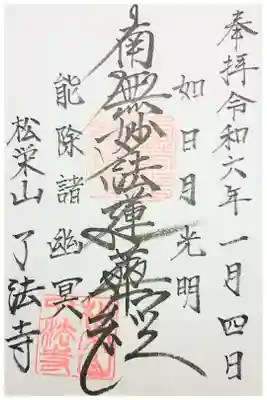 奉拝 令和六年一月四日
如日月光明
南無妙法蓮華経
能除諸幽冥
松栄山 了法寺